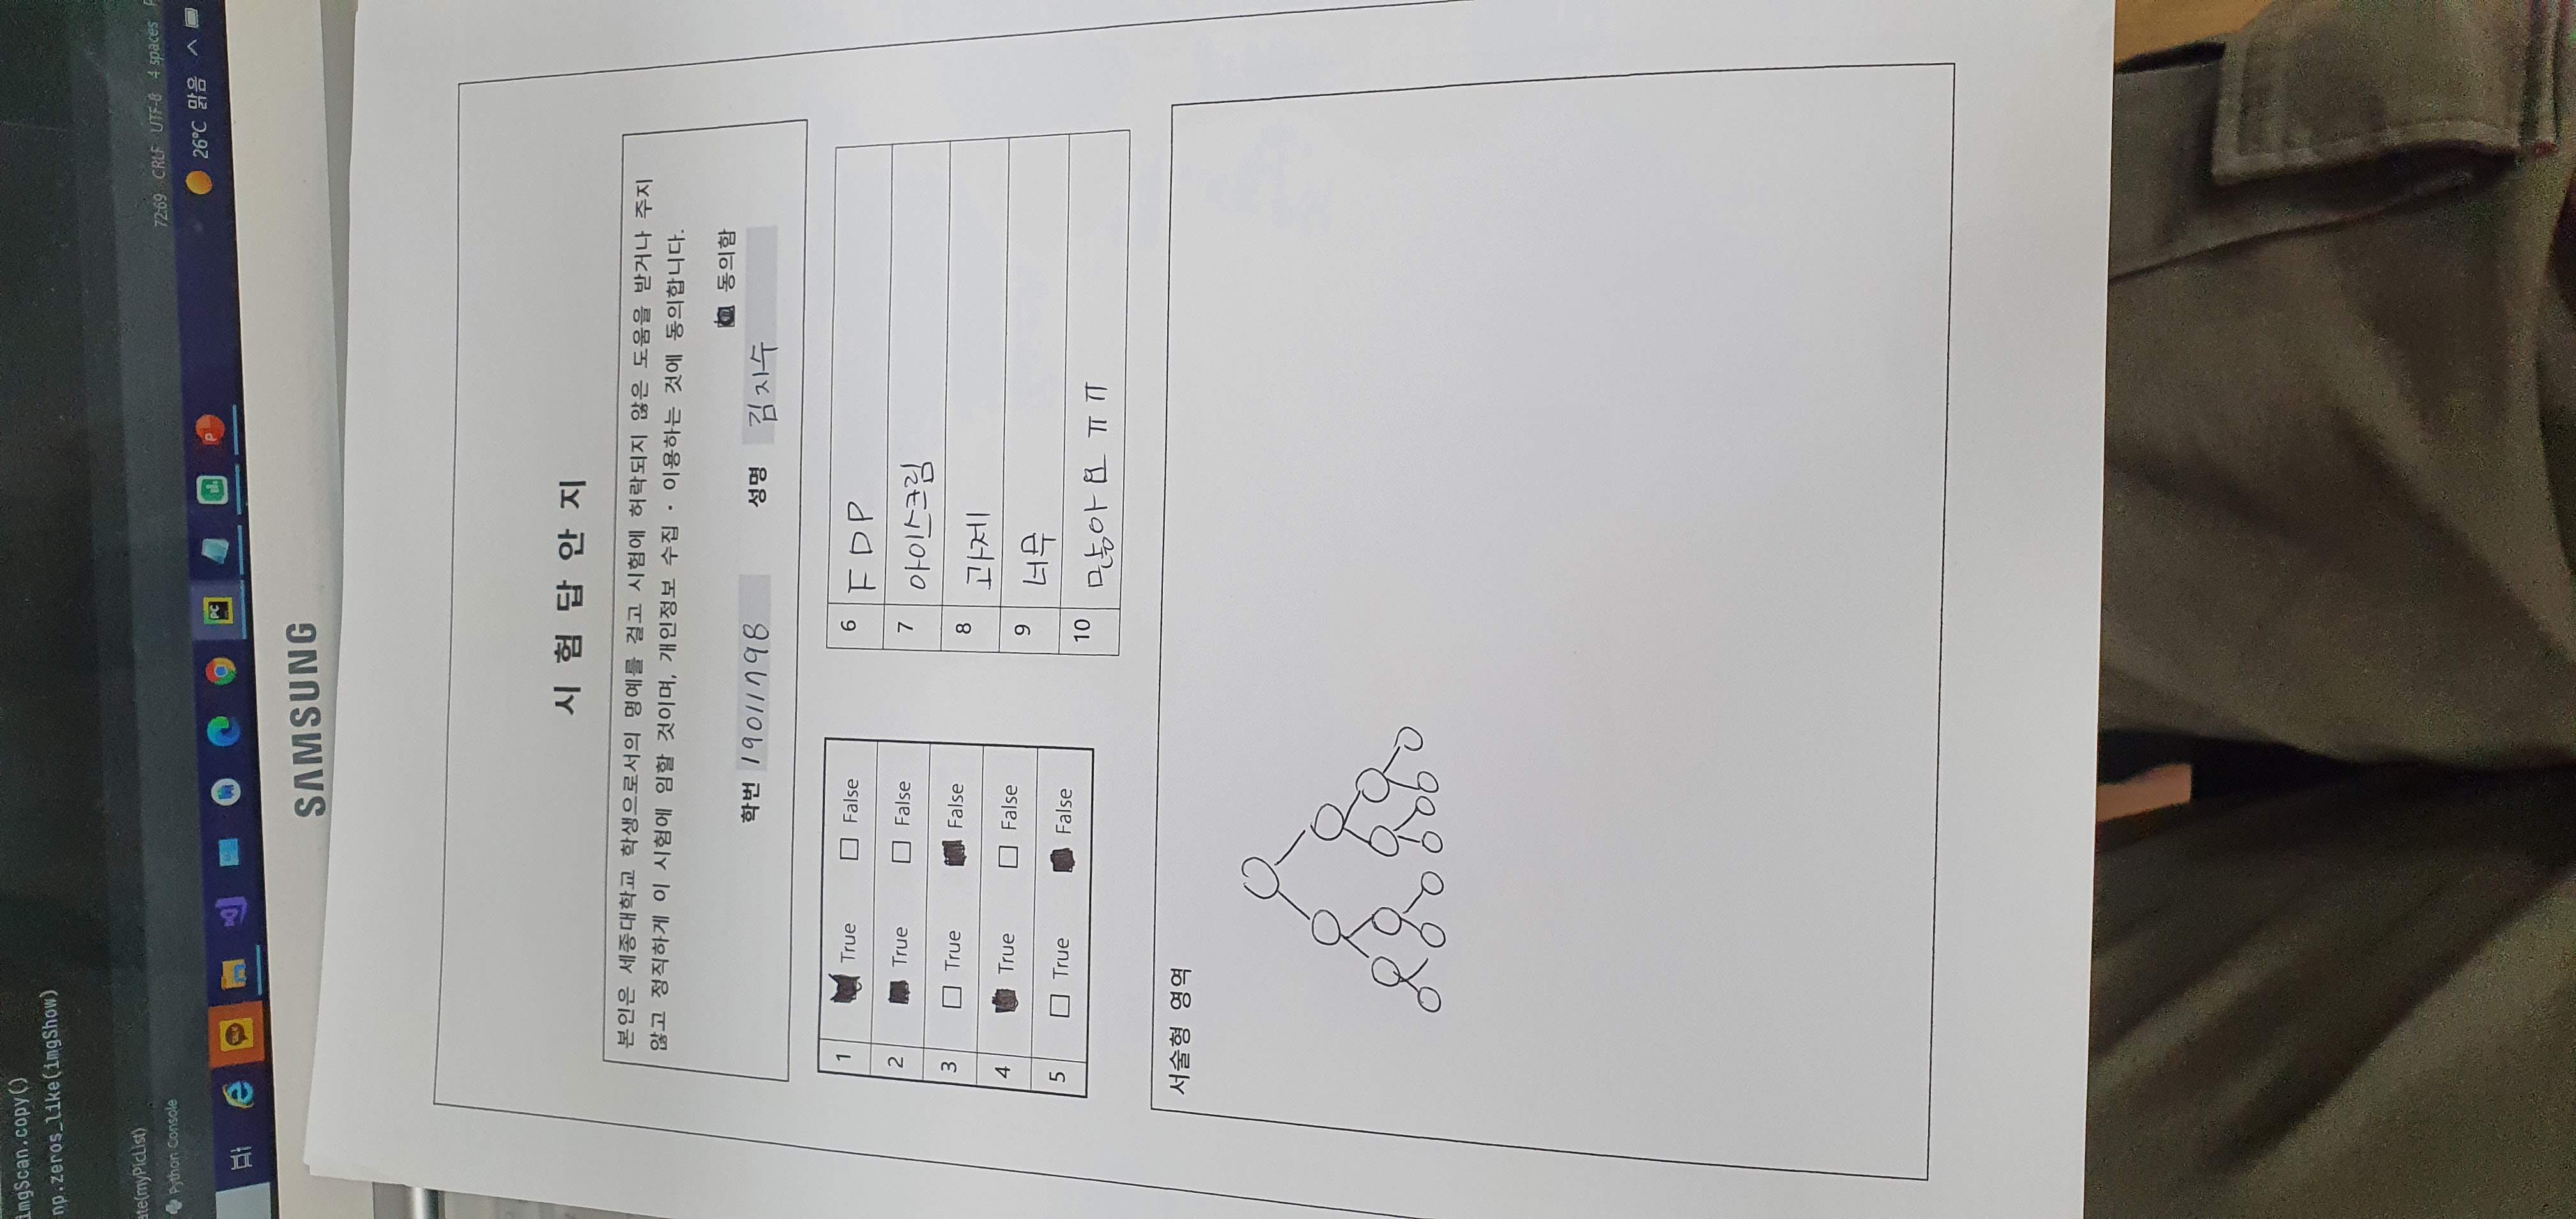 imgScan.copy()
np.zeros_like(imgShow)
ate(myPicList)
Python Console
72:69 CRLF UTF-8 4 spaces
26°C 맑음
SAMSUNG
시 험 답 안 지
본인은 세종대학교 학생으로서의 명예를 걸고 시험에 허락되지 않은 도움을 받거나 주지
않고 정직하게 이 시험에 임할 것이며, 개인정보 수집 · 이용하는 것에 동의합니다.
동의함
학번 19011798 성명 김지수
1 True False
2 True False
3 True False
4 True False
5 True False
6 FDP
7 아이스크림
8 과제
9 너무
10 많아요 ㅠㅠ
서술형 영역